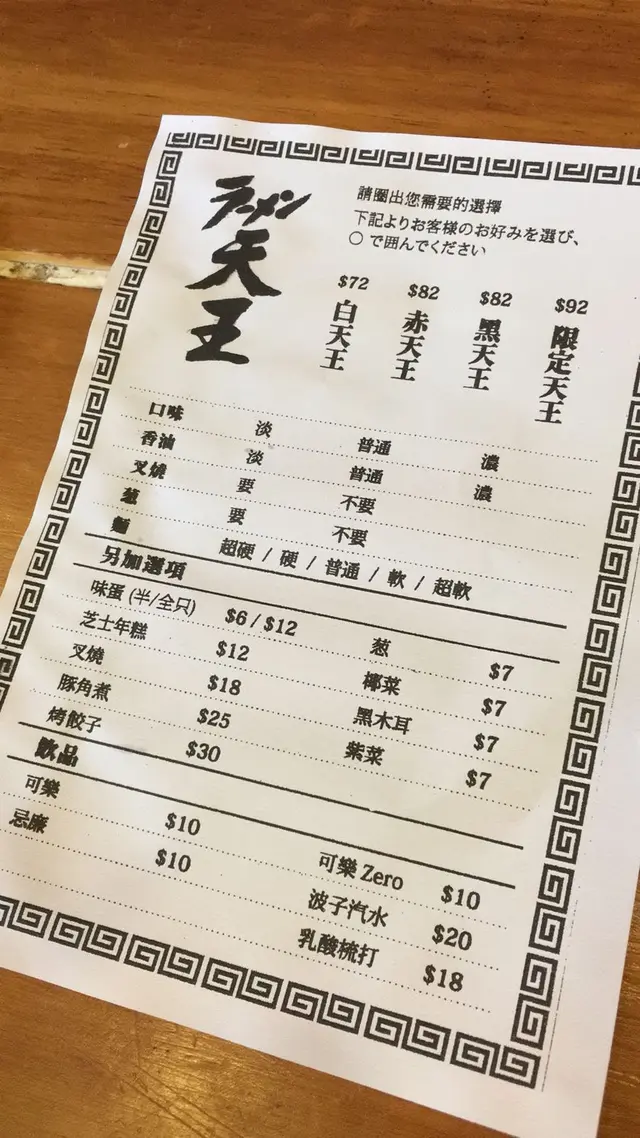 ラーメン
天王
請圈出您需要的選擇
下記よりお客様のお好みを選び、
○で囲んでください
$72 白天王
$82 赤天王
$82 黑天王
$92 限定天王
口味 淡 普通 濃
香油 淡 普通 濃
叉燒 要 不要
葱 要 不要
麵 超硬 / 硬 / 普通 / 軟 / 超軟
另加選項
味蛋 (半/全只) $6 / $12 葱 $7
芝士年糕 $12 椰菜 $7
叉燒 $18 黑木耳 $7
豚角煮 $25 紫菜 $7
烤餃子 $30
飲品
可樂 $10 可樂 Zero $10
忌廉 $10 波子汽水 $20
乳酸梳打 $18